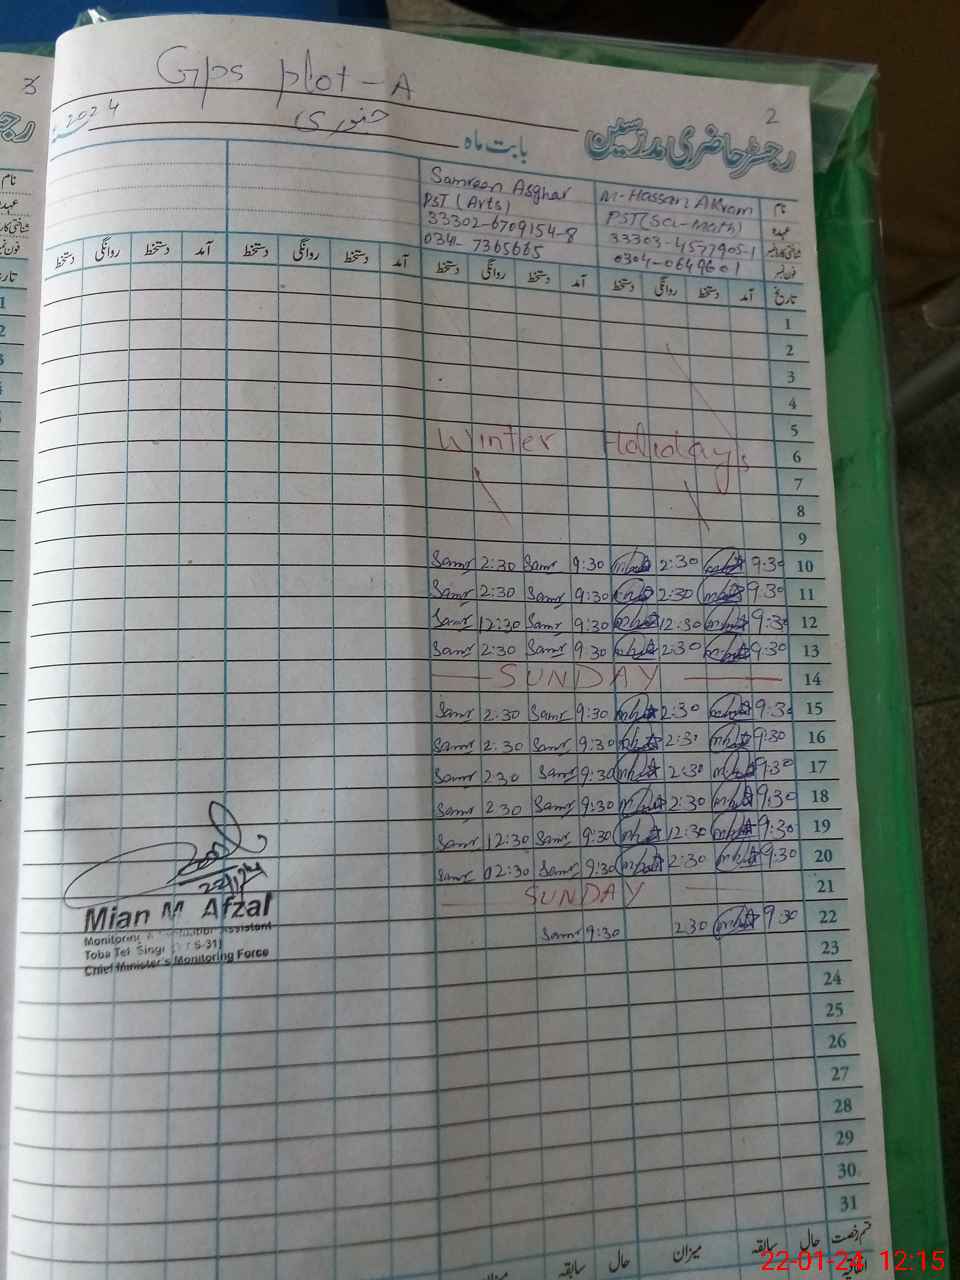 Gps plot - A
2
رجسٹر حاضری مدرسین
بابت ماہ
جنوری
2024
نام
M-Hassan Akram
Samreen Asghar
عہدہ
PST(Sci-Math)
PST (Arts)
33303-4577905-1
33302-6709154-8
فون نمبر
0304-0649601
0341-7365665
تاریخ آمد دستخط روانگی دستخط آمد دستخط روانگی دستخط آمد دستخط روانگی دستخط آمد دستخط روانگی دستخط
1
2
3
4
5
Winter Holidays
6
7
8
9
Samr 2:30 Samr 9:30 2:30 9:30 10
Samr 2:30 Samr 9:30 2:30 9:30 11
Samr 12:30 Samr 9:30 12:30 9:30 12
Samr 2:30 Samr 9:30 2:30 9:30 13
SUNDAY 14
Samr 2:30 Samr 9:30 2:30 9:30 15
Samr 2:30 Samr 9:30 2:31 9:30 16
Samr 2:30 Samr 9:30 2:30 9:30 17
Samr 2:30 Samr 9:30 2:30 9:30 18
Samr 12:30 Samr 9:30 12:30 9:30 19
Samr 02:30 Samr 9:30 2:30 9:30 20
SUNDAY 21
Samr 9:30 2:30 9:30 22
23
24
25
26
27
28
29
30
31
22/1/24
Mian M. Afzal
Monitoring Assistant
Toba Tek Singh
Chief Minister's Monitoring Force
قسم رخصت حال سابقہ میزان حال سابقہ میزان
اتفاقیہ
22-01-24 12:15
3
نام
فون نمبر
1
2